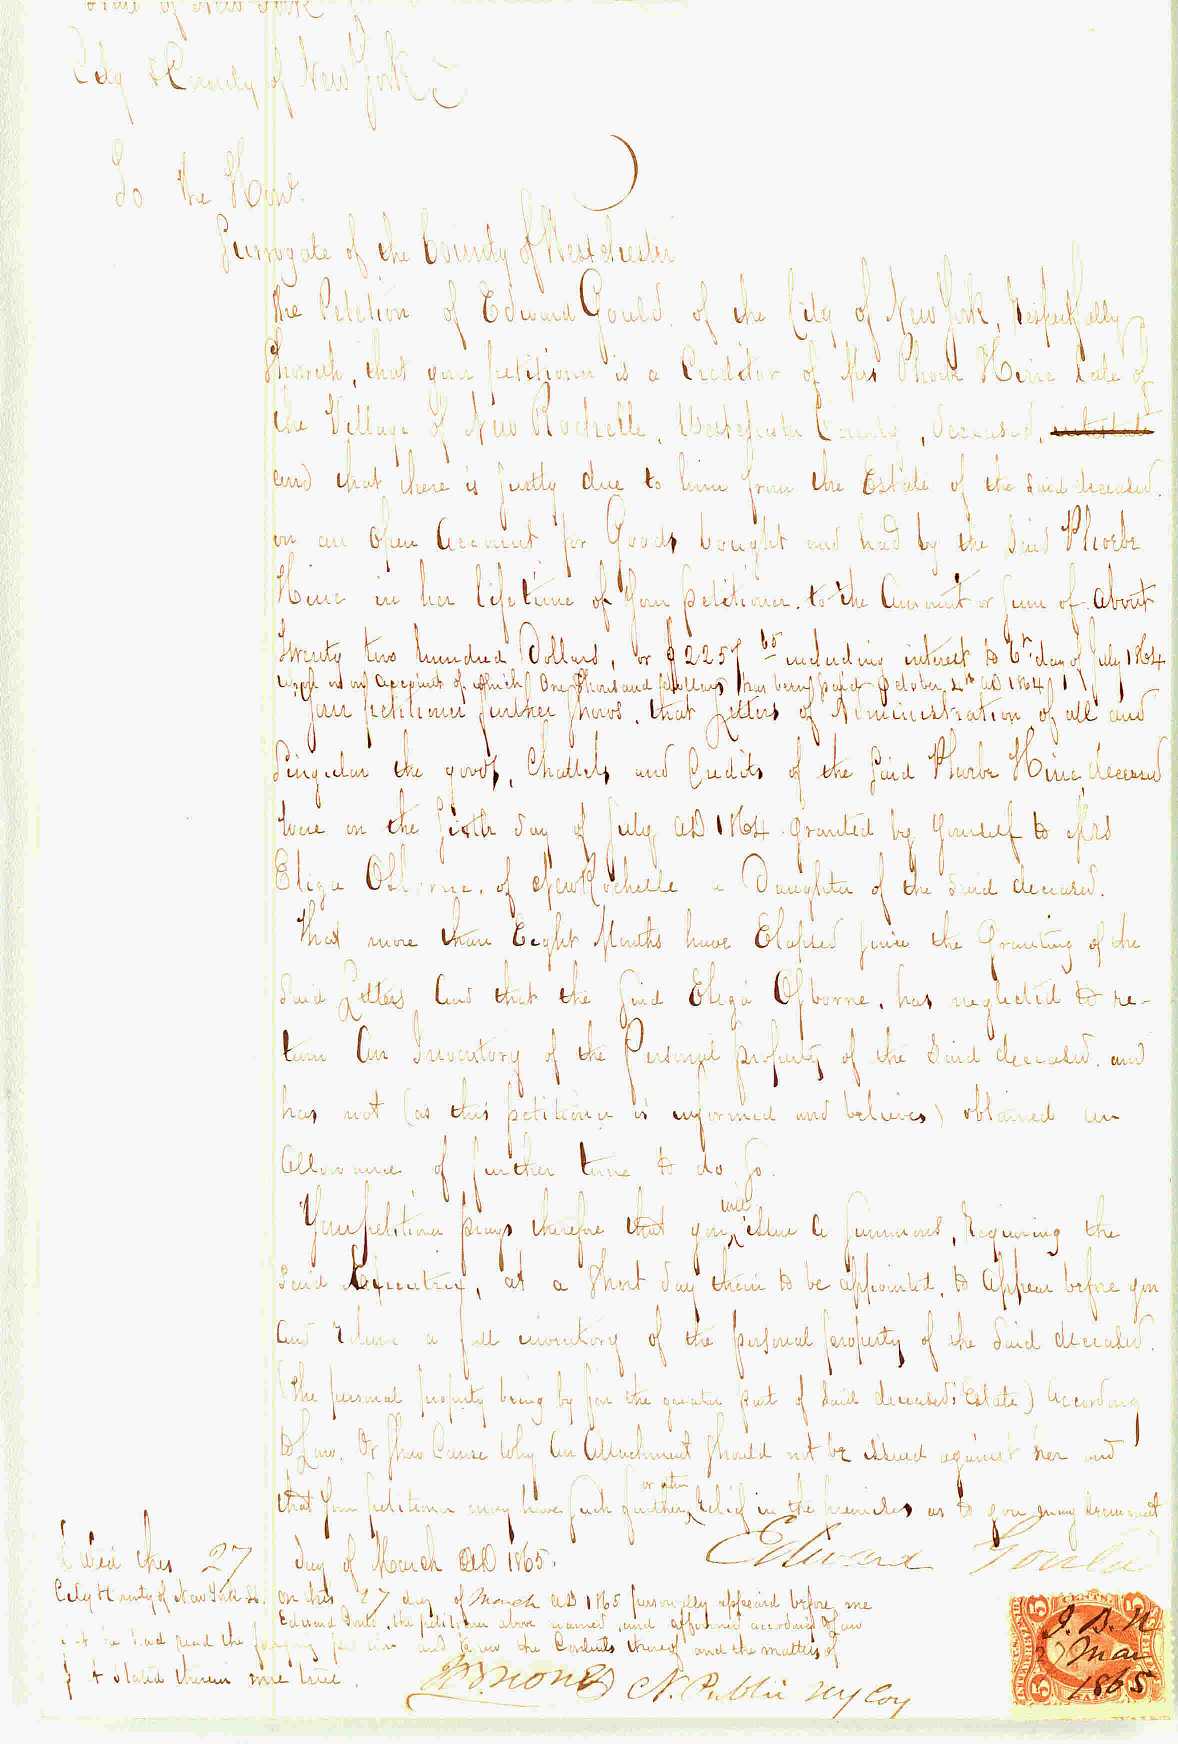 State of New York
City & County of New York
To the Hon.
Surrogate of the County of Westchester
The Petition of Edward Gould of the City of New York, Respectfully
Sheweth, that your petitioner is a Creditor of Mrs Phoebe Hine late of
the Village of New Rochelle, Westchester County, deceased, intestate
and that there is justly due to him from the Estate of the said deceased.
on an Open Account for Goods bought and had by the said Phoebe
Hine in her lifetime of your petitioner. to the Amount or sum of About
Twenty two hundred Dollars, or $2257 65 including interest to 6th day of July 1864
on account of which One thousand dollars has been paid October 4th AD 1864
Your petitioner further shows, that Letters of Administration of all and
Singular the goods, Chattels and Credits of the said Phoebe Hine, deceased
were on the Sixth day of July AD 1864 granted by Yourself to Mrs
Eliza Osborne, of New Rochelle a Daughter of the said deceased.
That more than Eight Months have Elapsed since the Granting of the
said Letters And that the said Eliza Osborne, has neglected to re-
turn An Inventory of the Personal property of the said deceased. and
has not (as this petitioner is informed and believes) obtained an
Allowance of further time to do so.
Your petitioner prays therefore that you will issue a Summons, Requiring the
said Executrix, at a Short day therein to be appointed, to Appear before you
And return a full inventory of the personal property of the said deceased.
(The personal property being by far the greater part of said deceased's Estate) According
to Law, Or Show Cause Why An Attachment should not be issued against her and
that Your petitioner may have such further or other relief in the premises as to you may seem meet
Dated this 27 day of March AD 1865. Edward Gould
City & County of New York SS. On this 27 day of March AD 1865 personally appeared before me
Edward Gould, the petitioner above named, and affirmed according to law
that he had read the foregoing petition and knew the Contents thereof and the matters of
fact stated therein were true.
N. Public NY Coy
J. B. N
27 Mar
1865